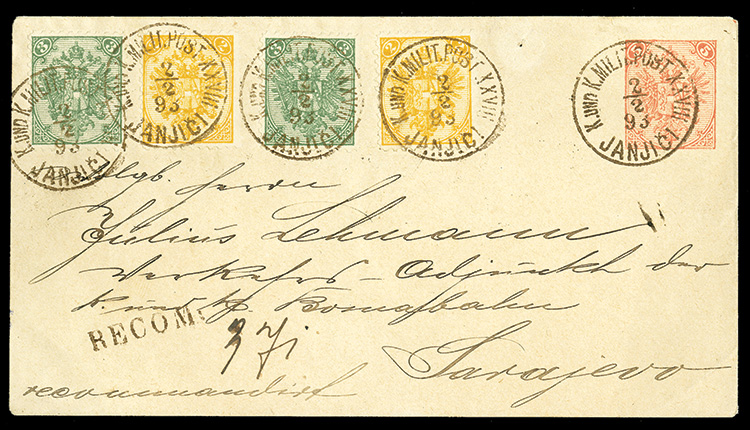 3 3 2 2 3 3 2 2 5 5
K. UND K. MILIT. POST XXVIII
2/2 93
JANJIĆI
K. UND K. MILIT. POST XXVIII
2/2 93
JANJIĆI
2/2 93
JANJIĆI
K. UND K. MILIT. POST XXVIII
2/2 93
JANJIĆI
K. UND K. MILIT. POST XXVIII
2/2 93
JANJIĆI
Herrn
Julius Lehmann
Verkehrs-Adjunkt der
k. und k. Bosnabahn
RECOM.
Sarajevo
recommandirt